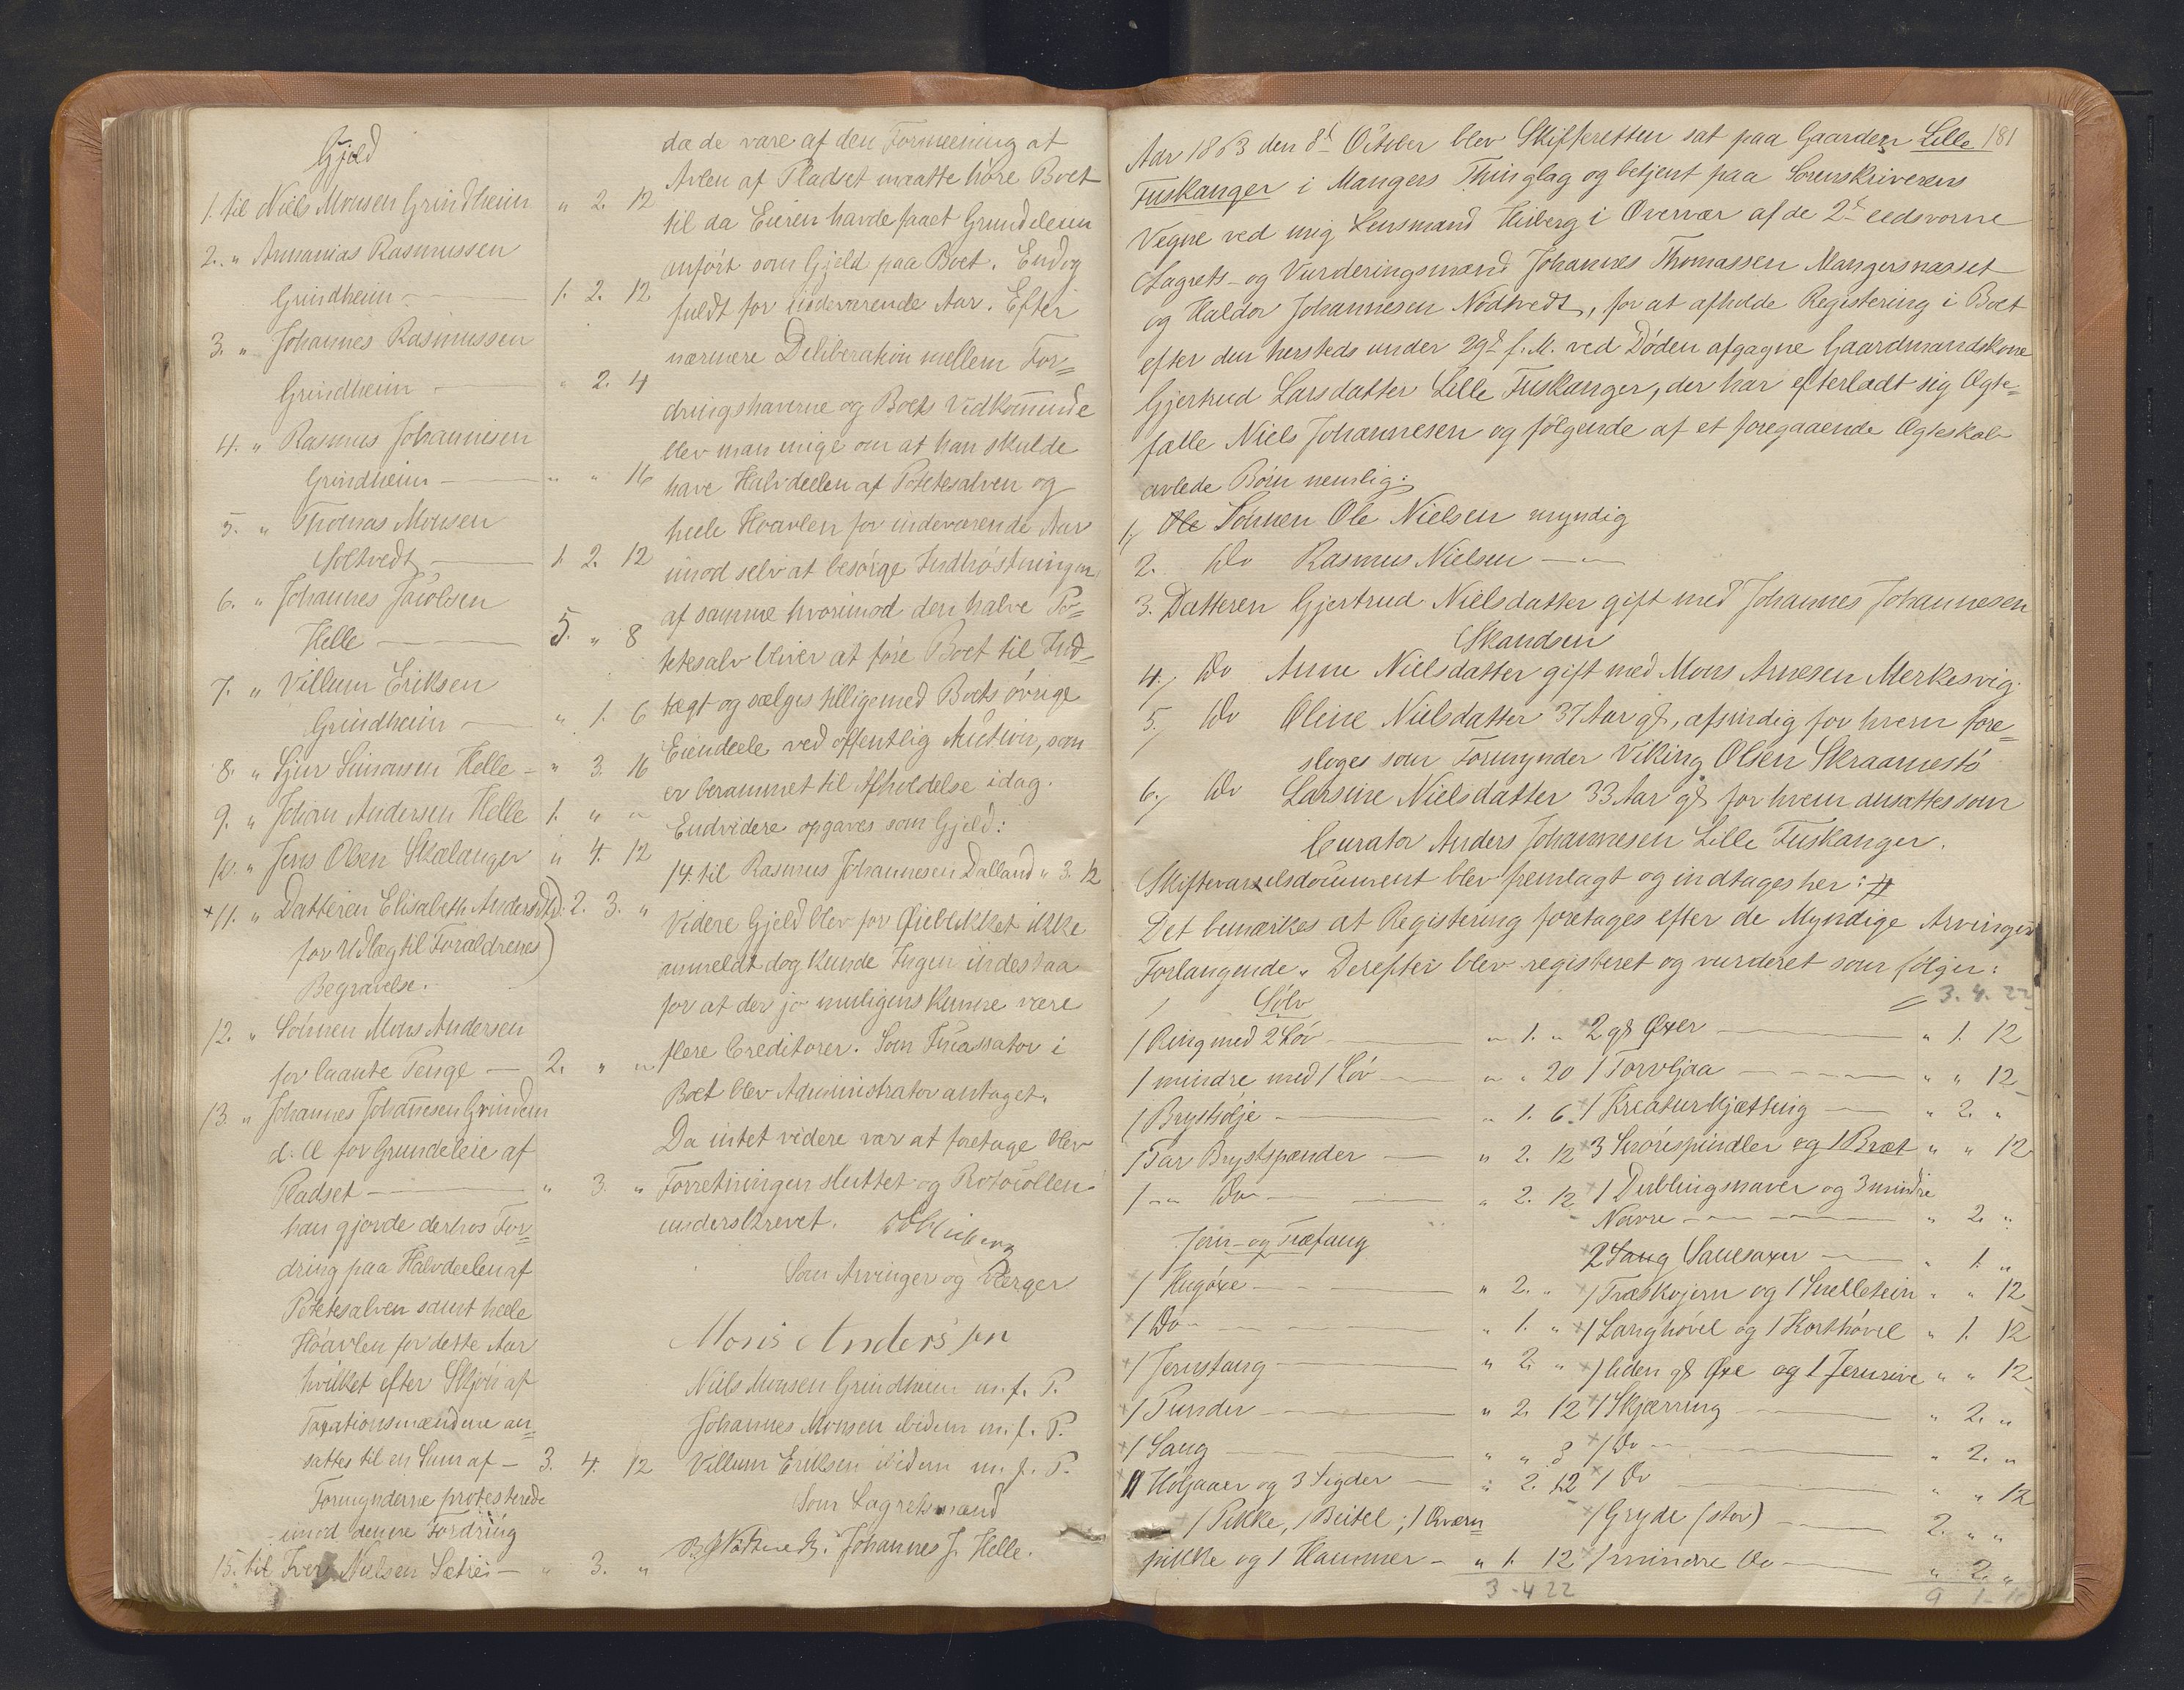 Gjeld
1. til Niels Monsen Grindheim " 2. 12
2. " Annanias Rasmussen
Grindheim — 1. 2. 12
3. " Johannes Rasmussen
Grindheim — " 2. 4
4. " Rasmus Johannesen
Grindheim — " " 16
5. " Thomas Monsen
Soltvedt — 1. 2. 12
6. " Johannes Jacobsen
Helle — 5. " 8
7. " Villum Eriksen
Grindheim — " 1. 6
8. " Sjur Simonsen Helle — " 3. 16
9. " Johan Andersen Helle 1. " "
10. " Jens Olsen Skalanger " 4. 12
11. " Datteren Elisabeth Andersdtr. 2. 3. "
for Udlæg til Forældrenes
Begravelse.
12. " Sønnen Mons Andersen
for laante Penge — 2. " "
13. " Johannes Johannesen Grindem
d. Æ for Grundeleie af
Pladset — " 3. "
han gjorde derhos For=
dring paa Halvdeelen af
Potetesalven samt heele
Høavlen for dette Aar
hvilket efter Skjøn af
Taxationsmændene an=
sattes til en Sum af — 3. 4. 12
Formynderne protesterede
imod denne Fordring
15. til Iver Nielsen Sætre — " 3. "
da de vare af den Formeening at
Avlen af Pladset maatte høre Boet
til da Eieren havde faaet Grundeleien
anført som Gjeld paa Boet. Endog
fuldt for indeværende Aar. Efter
nærmere Deliberation mellem For=
dringshaverne og Boets Vedkommende
blev man enige om at han skulde
have Halvdeelen af Potetesalven og
heele Høavlen for indeværende Aar
imod selv at besørge Indhøstningen
af samme hvorimod den halve Po=
tetesalv bliver at føre Boet til Ind=
tægt og sælges tilligemed Boets øvrige
Eiendeele ved offentlig Auction, som
er berammet til Afholdelse idag.
Endvidere opgaves som Gjeld:
14. til Rasmus Johannesen Dalland " 3. 12
Videre Gjeld blev for Øieblikket ikke
anmeldt dog kunde Ingen indestaa
for at der jo muligens kunne være
flere Creditorer. Som Incassator i
Boet blev Administrator antaget.
Da intet videre var at foretage blev
Forretningen sluttet og Protocollen
underskrevet. Heiberg
Som Arvinger og Værger
Mons Anderssen
Niels Monsen Grindheim m. f. P.
Johannes Monsen ibidem m. f. P.
Villum Eriksen ibidem m. f. P.
Som Lagretsmænd
Johannes J. Helle.
181
Aar 1863 den 8d October blev Skifteretten sat paa Gaarden Lille
Fuskanger i Mangers Thinglag og betjent paa Sorenskriverens
Vegne ved mig Lensmand Heiberg i Overvær af de 2de eedsvorne
Lagrets- og Vurderingsmænd Johannes Thomassen Mangersnæsset
og Haldor Johannesen Nødtvedt, for at afholde Registering i Boet
efter den hersteds under 29d f. M. ved Døden afgagne Gaardmandskone
Gjertrud Larsdatter Lille Fuskanger, der har efterladt sig Ægte=
fælle Niels Johannesen og følgende af et foregaaende Ægteskab
avlede Børn nemlig:
1. Ole Sønnen Ole Nielsen myndig
2. Do Rasmus Nielsen — " —
3. Datteren Gjertrud Nielsdatter gift med Johannes Johannesen
Skandsen
4. Do Anne Nielsdatter gift med Mons Arnesen Merkesvig
5. Do Oline Nielsdatter 37 Aar gl, afsindig for hvem fore=
sloges som Formynder Viking Olsen Skraamestø
6. Do Larsine Nielsdatter 33 Aar gl for hvem ansattes som
Curator Anders Johannesen Lille Fuskanger.
Skiftevarselsdocument blev fremlagt og indtages her:
Det bemærkes at Registering foretages efter de Myndige Arvingers
Forlangende. Derefter blev registeret og vurderet som følger:
Sølv
1 Ring med 2 Løv — " 1. "
1 mindre med 1 Løv — " " 20
1 Brystsølje — " 1. 6
1 Par Brystspænder — " 2. 12
1 — " Do — " 2. 12
Jern- og Træfang
1 Hugøxe — " 2. "
1 Do — " 1. "
1 Jernstang — " 2. "
1 Punder — " 2. 12
1 Saug — " " 8
Holjaaer og 3 Sigder — " 2. 12
1 Pikke, 1 Beitel; 1 Qværn=
pikke og 1 Hammer — " 1. 12
3 - 4 22
3. 4. 22
2 gl Øxer — " 1. 12
1 Torvljaa — " " 12
1 Kreaturkjetting — " 2. "
3 Snørespindler og 1 Bræt " " 12
1 Dublingsnaver og 3 mindre
Navre — " 2. "
2 Saug Sauesaxer — " 1. "
1 Træskojern og 1 Snelletein " " 12
1 Langhøvel og 1 Korthøvel " 1. 12
1 liden gl Øxe og 1 Jernrive " " 12
1 Skjæring — " 2. "
1 Do — " 2. "
1 Do " " 12
1 Gryde (stor) — 2. " "
1 mindre Do — " 2. "
9 1